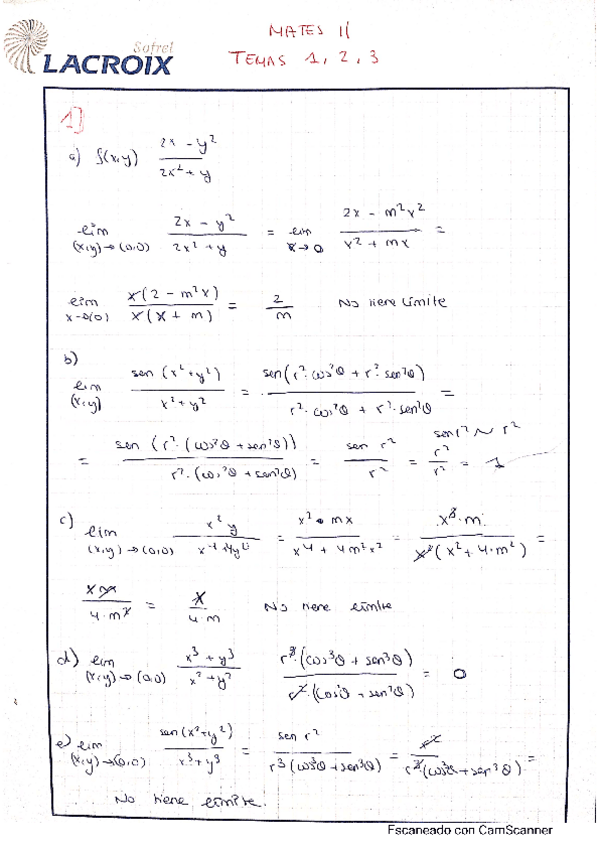 MATES II
Sofrel
LACROIX
TEMAS 1, 2, 3
1]
a) f(x,y) (2x - y²)/(2x² + y)
lim (x,y)→(0,0) (2x - y²)/(2x² + y) = lim x→0 (2x - m²x²)/(x² + mx) =
lim x→(0) x(2 - m²x)/x(x + m) = 2/m No tiene límite
b)
lim (x,y) sen (x² + y²)/(x² + y²) = sen(r²·cos²θ + r²·sen²θ)/(r²·cos²θ + r²·sen²θ) =
= sen (r²·(cos²θ + sen²θ))/(r²·(cos²θ + sen²θ)) = sen r²/r² = r²/r² = 1
sen r² ~ r²
c) lim (x,y)→(0,0) x²y/(x⁴+4y²) = x²·mx/(x⁴ + 4m²x²) = x³·m/x²(x² + 4·m²) =
xm/4·m² = x/4·m No tiene límite
d) lim (x,y)→(0,0) (x³ + y³)/(x² + y²) r³·(cos³θ + sen³θ)/r²·(cos²θ + sen²θ) = 0
e) lim (x,y)→(0,0) sen(x²+y²)/(x³+y³) = sen r²/r³(cos³θ + sen³θ) = r²/r³(cos³θ + sen³θ) =
No tiene límite.
Escaneado con CamScanner